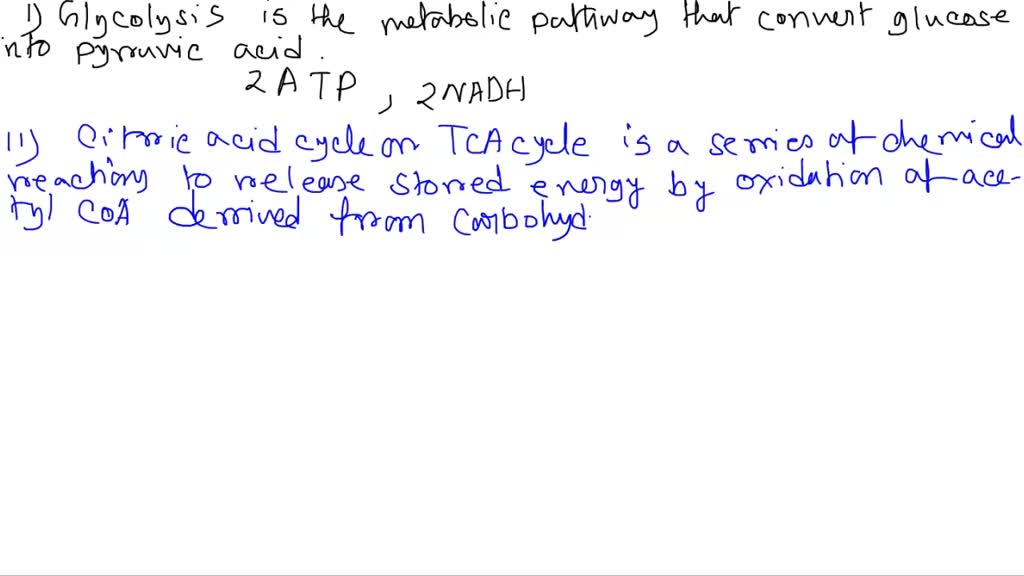 1) Glycolysis is the metabolic pathway that convert glucose
into pyruvic acid.
2 ATP, 2NADH
11) Citric acid cycle or TCA cycle is a series of chemical
reactions to release stored energy by oxidation of ace-
tyl CoA derived from Carbohyd.